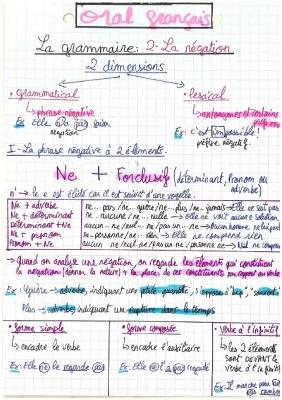 Oral français
La grammaire: 2- La négation
2 dimensions
• grammatical
• lexical
↳ phrase négative
↳ antonymes et certains préfixes
Ex: Elle va pas
négation
Ex: c'est impossible!
préfixe négatif
I- La phrase négative à 2 éléments.
Ne + Forclusif (déterminant, pronom ou adverbe)
n' → le e est élidé car il est suivit d'une voyelle.
Ne + adverbe
Ne + déterminant
déterminant + Ne
Ne + pronom
Pronom + Ne
ne... pas / ne... guère / ne... plus / ne... jamais → Elle ne sait pas
ne... aucune / ne... nulle → Elle ne voit aucune solution.
aucun... ne / nul... ne / pas un... ne → Aucun homme ne
ne... personne / ne... rien → Elle ne comprend rien
aucun ne / nul ne / pas un ne / personne ne → Nul ne
→ Quand on analyse une négation, on regarde les éléments qui constituent
la négation (donner la nature) + la place de ces constituants par rapport au verbe
Ex: • guère → adverbe, indiquant une petite quantité, s'oppose à
Plus → adverbe, indiquant une rupture dans le temps
• forme simple
• forme composée
• Verbe à l'infinitif
↳ encadre le verbe
↳ encadre l'auxiliaire
↳ les 2 éléments
sont devant le
verbe à l'infinitif
Ex: Elle ne le regarde pas
Ex: Elle ne l'a pas regardé
Ex: Il marche pour ne
pas